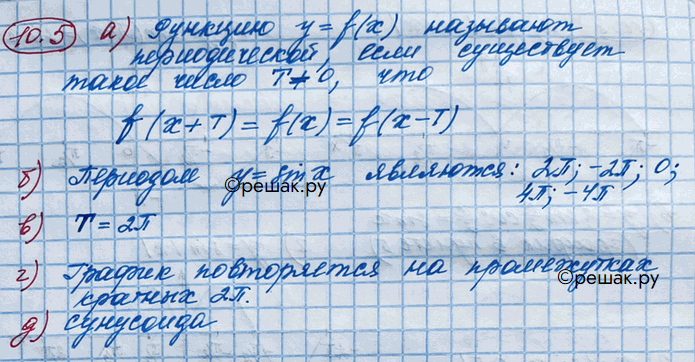 10.5 а) Функцию y = f(x) называют
периодической, если существует
такое число T ≠ 0, что
f(x+T) = f(x) = f(x-T)
б) Периодом y = sin x являются: 2π; -2π; 0;
4π; -4π
©решак.ру
в) T = 2π
г) График повторяется на промежутках
©решак.ру
кратных 2π.
д) сунусоида